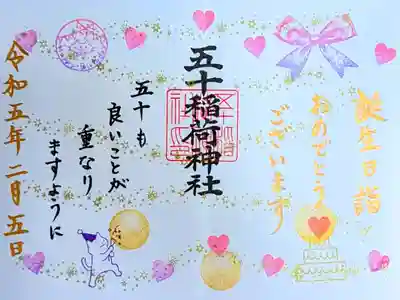 誕生日詣
おめでとう
ございます
五十稲荷神社
五十も
良いことが
重なり
ますように
令和五年二月五日